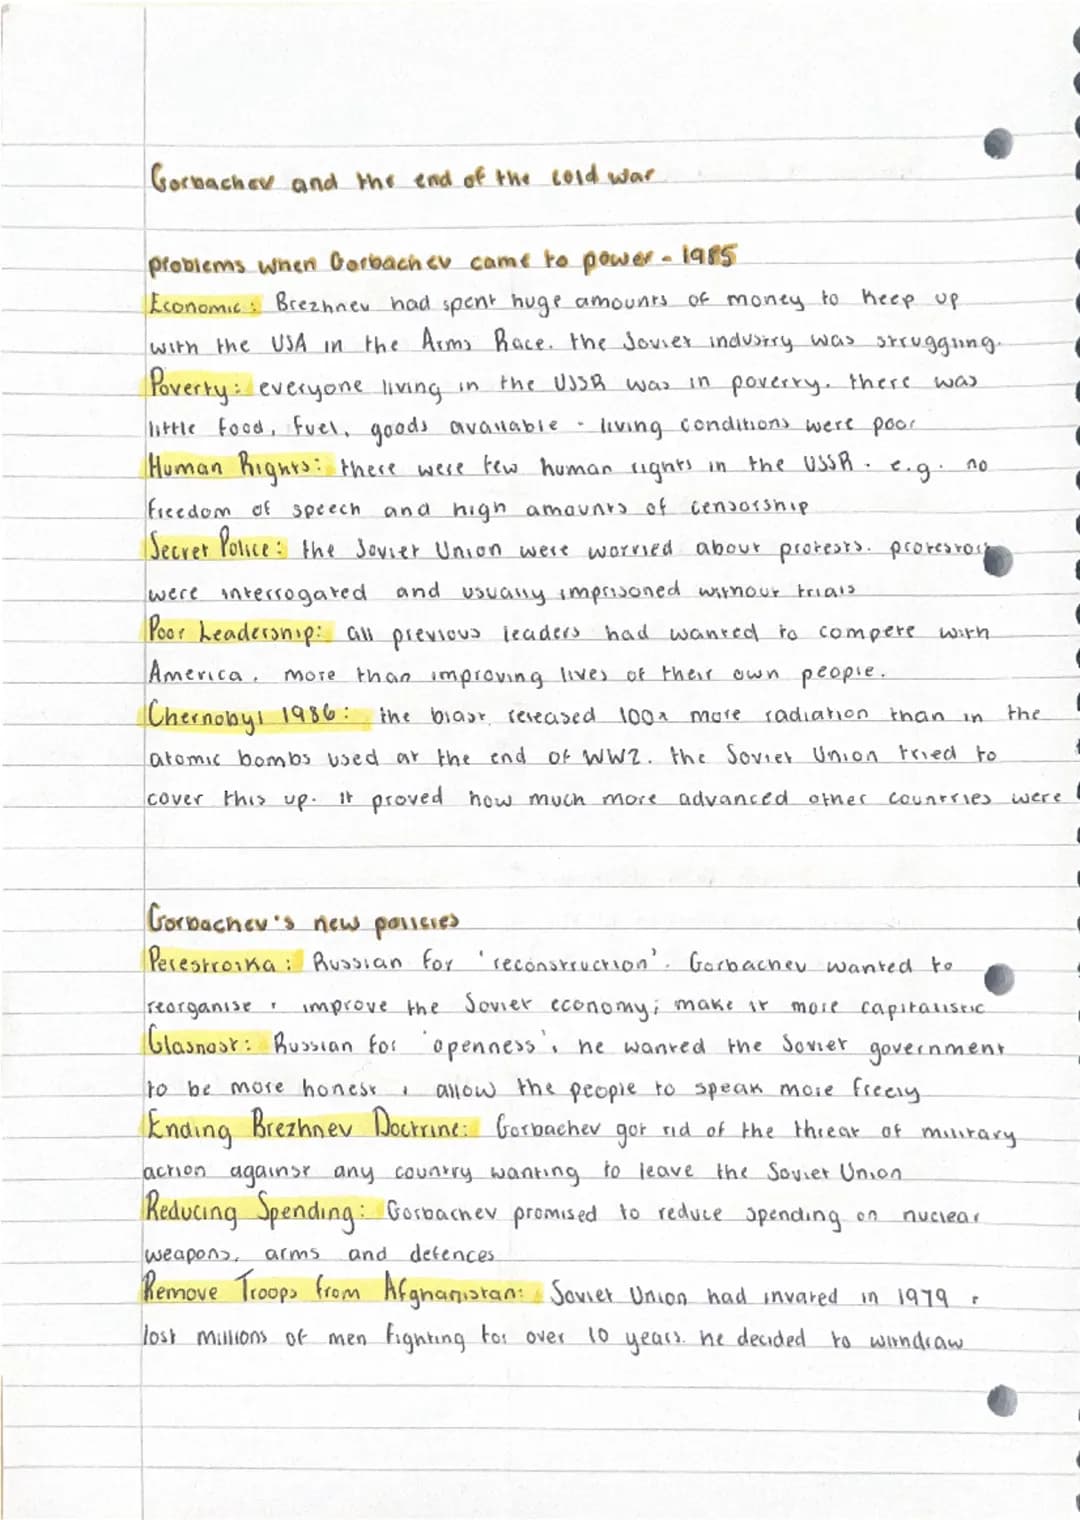 Gorbachev and the end of the cold war
problems when Gorbachev came to power - 1985
Economic: Brezhnev had spent huge amounts of money to keep up
with the USA in the Arms Race. the Soviet industry was struggling.
Poverty: everyone living in the USSR was in poverty. there was
little food, fuel, goods available - living conditions were poor
Human Rights: there were few human rights in the USSR. e.g. no
freedom of speech and high amounts of censorship
Secret Police: the Soviet Union were worried about protests. protestors
were interrogated and usually imprisoned without trials
Poor Leadership: all previous leaders had wanted to compete with
America, more than improving lives of their own people.
Chernobyl 1986: the blast released 100x more radiation than in the
atomic bombs used at the end of WW2. the Soviet Union tried to
cover this up. it proved how much more advanced other countries were
Gorbachev's new policies
Perestroika: Russian for 'reconstruction'. Gorbachev wanted to
reorganise + improve the Soviet economy; make it more capitalistic
Glasnost: Russian for 'openness', he wanted the Soviet government
to be more honest + allow the people to speak more freely
Ending Brezhnev Doctrine: Gorbachev got rid of the threat of military
action against any country wanting to leave the Soviet Union
Reducing Spending: Gorbachev promised to reduce spending on nuclear
weapons, arms and defences
Remove Troops from Afghanistan: Soviet Union had invared in 1979 +
lost millions of men fighting for over 10 years. he decided to withdraw